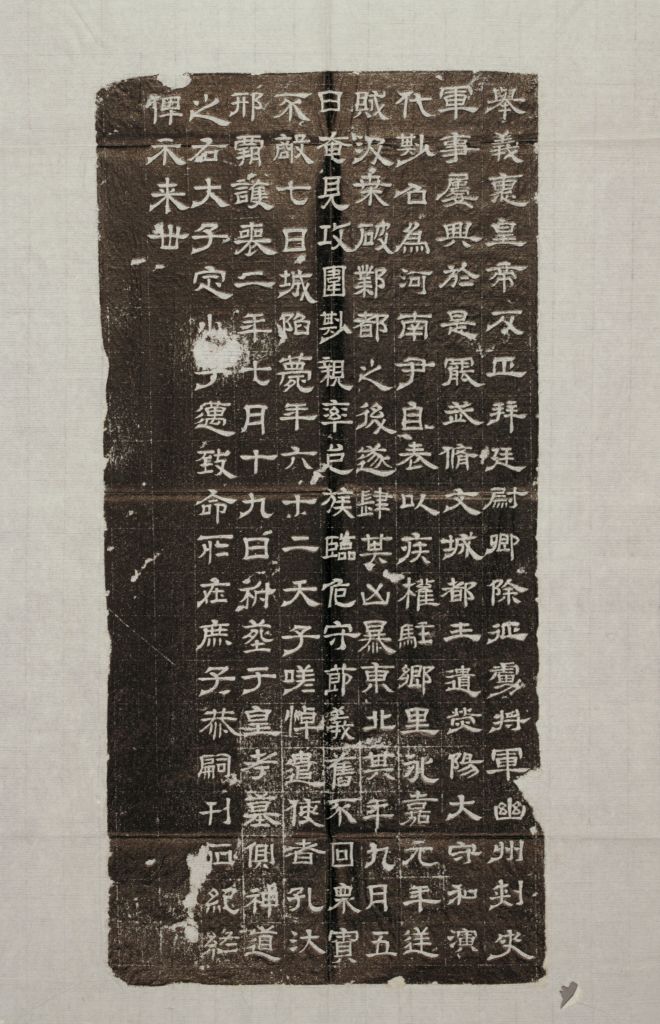 舉義惠皇帝反正拜廷尉卿除征虜將軍幽州刺史
軍事屢興於是罷武脩文城都王遣熒陽大守和演
代尟召為河南尹自表以疾權駐鄉里永嘉元年逆
賊汲桒破鄴都之後遂肆其凶暴東北其年九月五
日奄見攻圍尟親率邑族臨危守節義舊不回眾寡
不敵七日城陷薨年六十二天子嗟悼遣使者孔汏
邢霸護喪二年七月十九日祔塟于皇考墓側神道
之右大子定小子邁致命所在庶子恭嗣刊石紀終
俾示来世